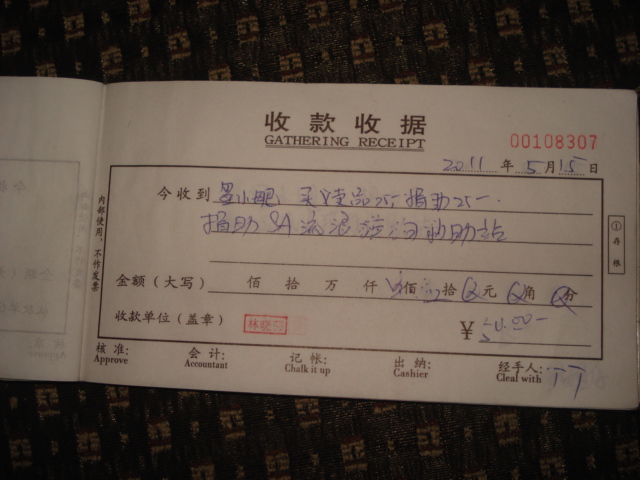 收款收据
GATHERING RECEIPT
00108307
2011年5月15日
今收到 墨小眼 买渎品25- 捐助25-
捐助 SA流浪 助站
金额（大写） 佰 拾 万 仟 佰 拾 元 角 分
收款单位（盖章） 林晓 ¥50.00-
核准: 会计: 记帐: 出纳: 经手人:
Approve Accountant Chalk it up Cashier Cleal with
内部使用，不作发票
①存根